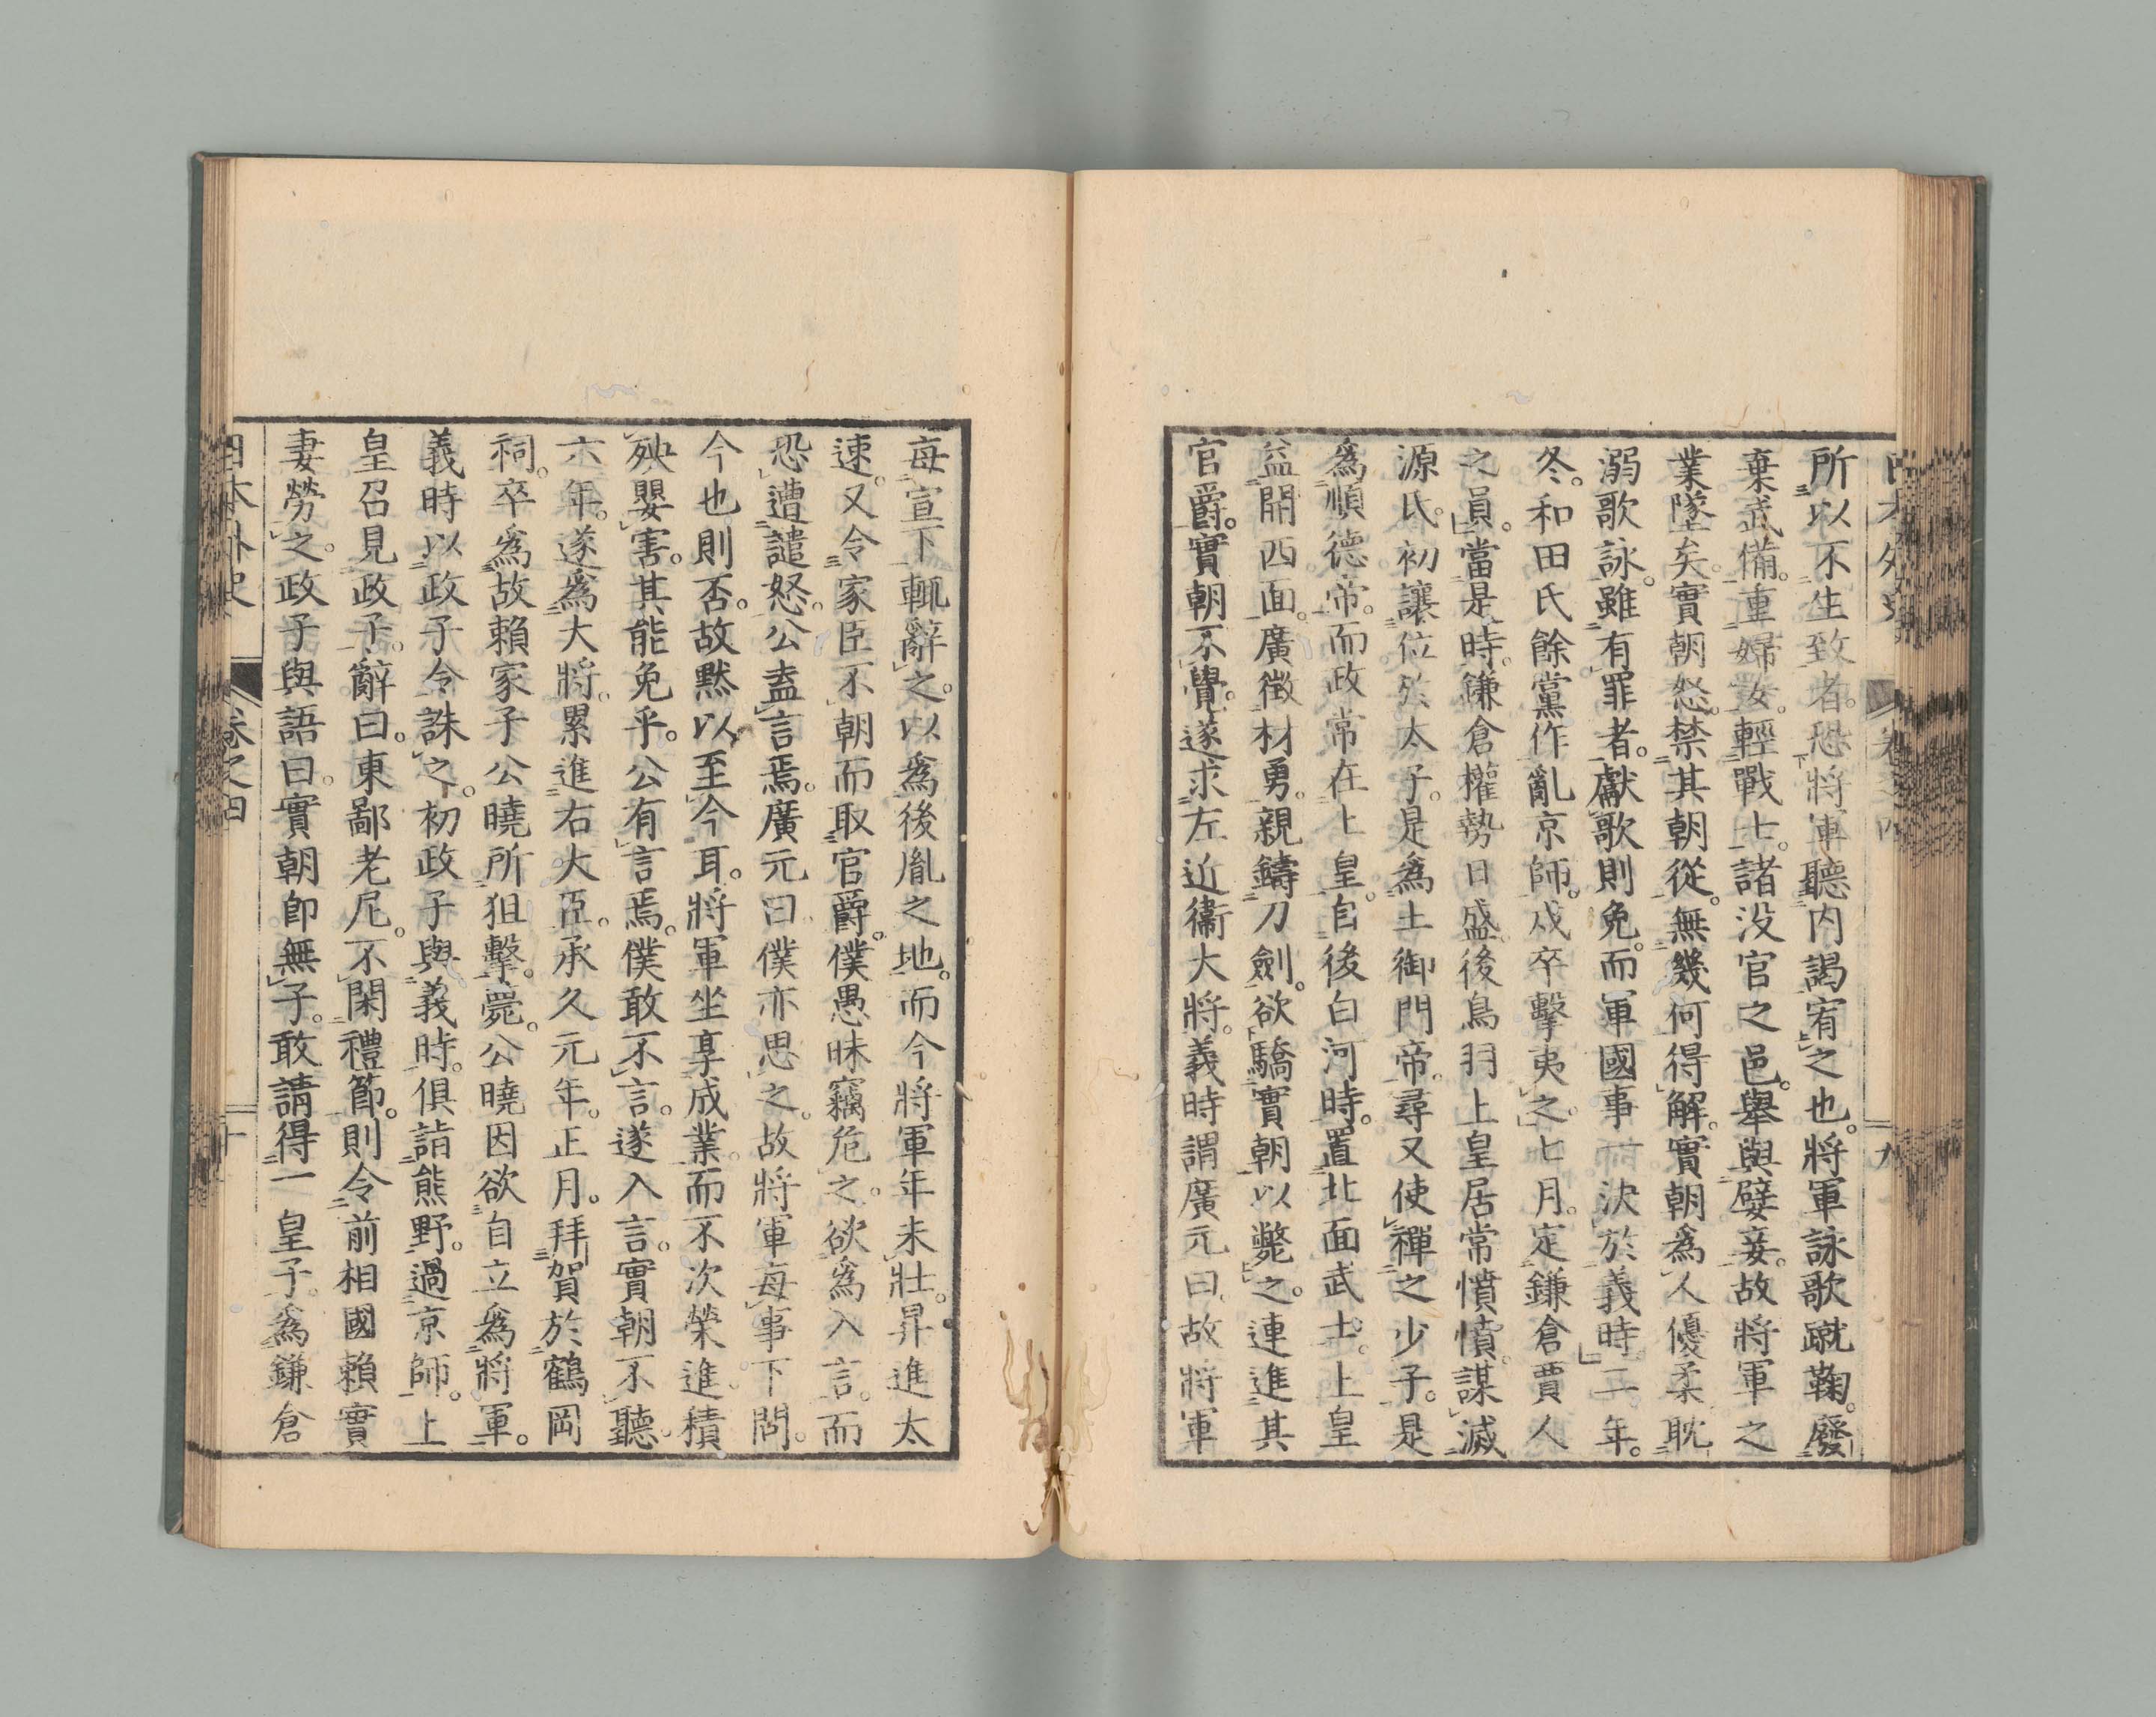 日本外史 卷之四 九
所以不生致者。恐將軍聽内謁宥之也。將軍詠歌蹴鞠。廢
棄武備。重婦女。輕戰士。諸没官之邑。舉與嬖妾。故將軍之
業墜矣。實朝怒。禁其朝從。無幾何得解。實朝爲人優柔耽
溺歌詠。雖有罪者。獻歌則免。而軍國事一決於義時。二年。
冬。和田氏餘黨作亂京師。戍卒擊夷之。七月。定鎌倉賈人
之員。當是時。鎌倉權勢日盛。後鳥羽上皇居常憤憤。謀滅
源氏。初讓位於太子。是爲土御門帝。尋又使禪之少子。是
爲順德帝。而政常在上皇。自後白河時。置北面武士。上皇
益開西面。廣徴材勇。親鑄刀劍。欲驕實朝以斃之。連進其
官爵。實朝不覺。遂求左近衞大將。義時謂廣元曰。故將軍
每宣下輒辭之。以爲後胤之地。而今將軍年未壯。昇進太
速。又令家臣不朝而取官爵。僕愚昧竊危之。欲爲入言。而
恐遭譴怒。公盍言焉。廣元曰。僕亦思之。故將軍每事下問。
今也則否。故黙以至今耳。將軍坐享成業。而不次榮進。積
殃嬰害。其能免乎。公有言焉。僕敢不言。遂入言。實朝不聽。
六年。遂爲大將。累進右大臣。承久元年。正月。拜賀於鶴岡
祠。卒爲故賴家子公曉所狙擊。薨。公曉因欲自立爲將軍。
義時以政子令誅之。初政子與義時。俱詣熊野。過京師。上
皇召見政子。辭曰。東鄙老尼。不閑禮節。則令前相國賴實
妻勞之。政子與語曰。實朝卽無子。敢請得一皇子。爲鎌倉
日本外史 卷之四 十